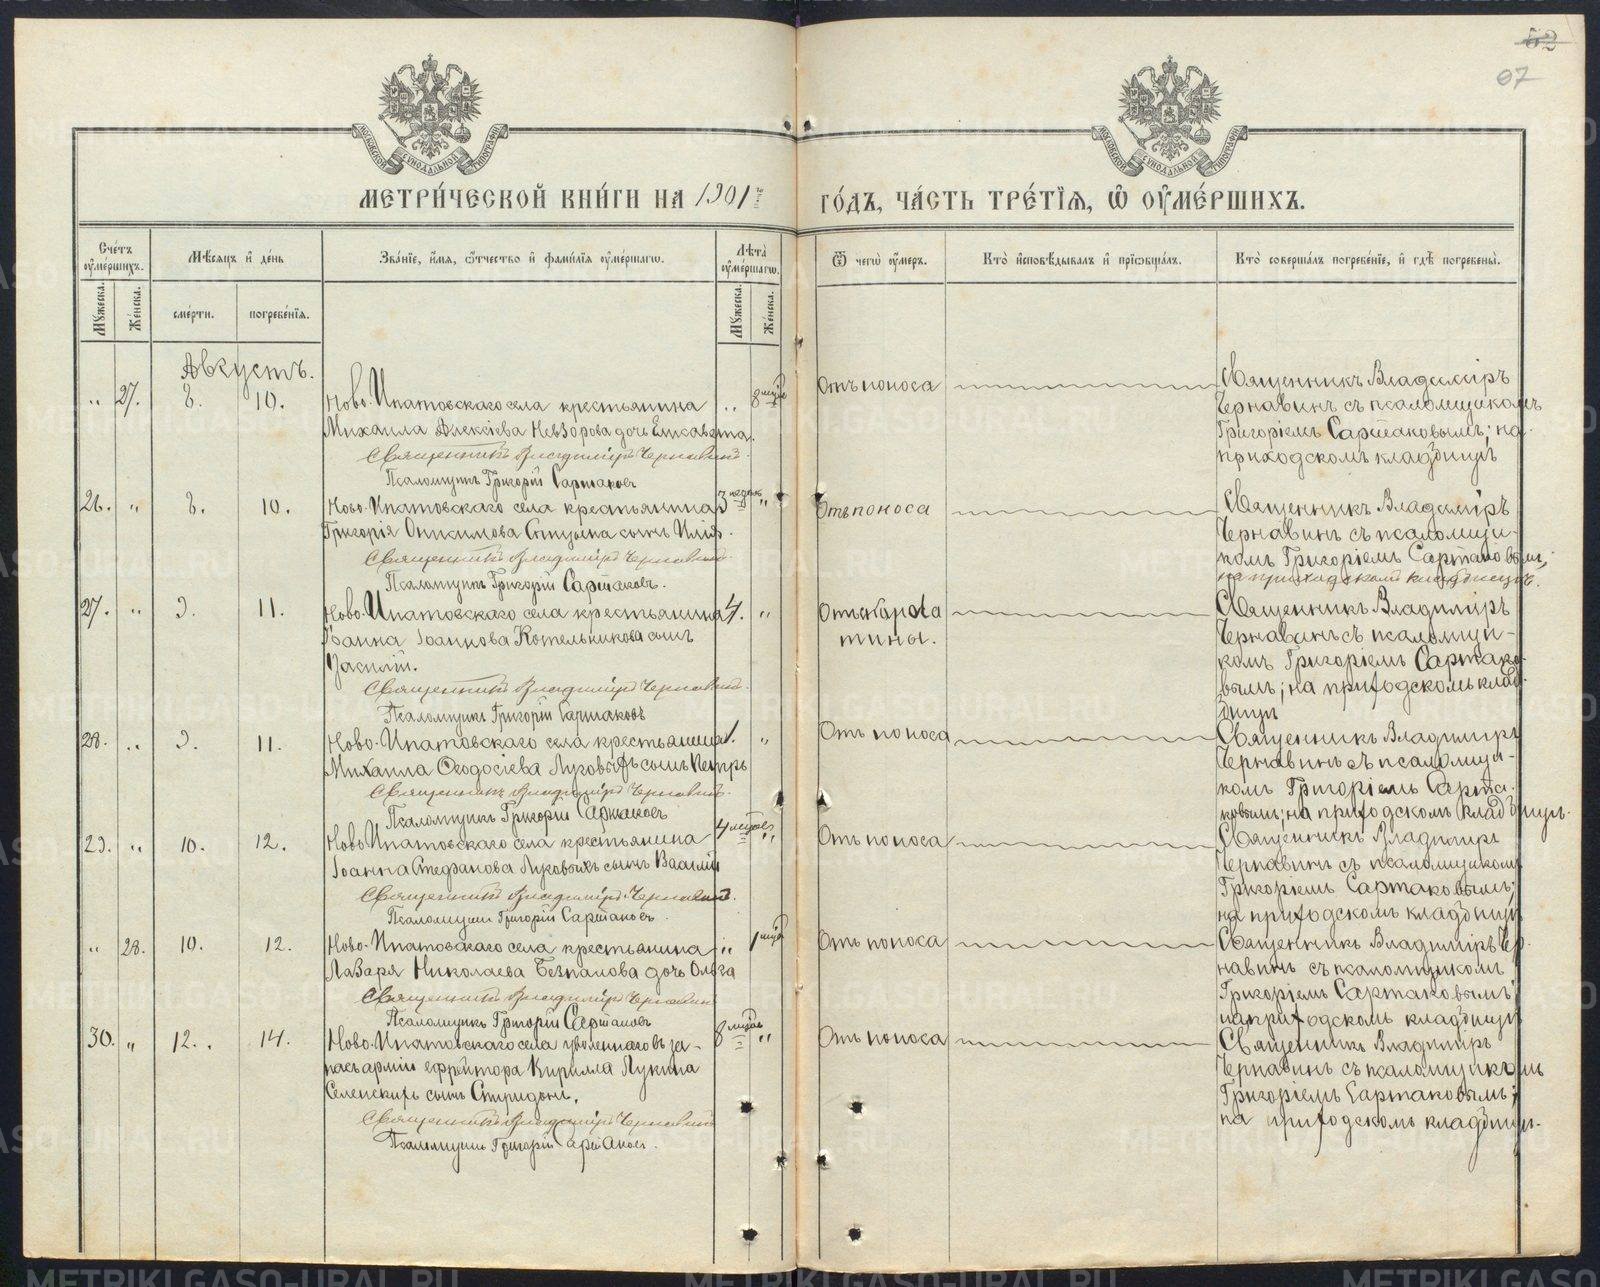 62
67
МОСКОВСКОЙ СѴНОДАЛЬНОЙ ТИПОГРАФІИ
МОСКОВСКОЙ СѴНОДАЛЬНОЙ ТИПОГРАФІИ
МЕТРИ́ЧЕСКОЙ КНИ́ГИ НА 1901 ГО́ДЪ, ЧА́СТЬ ТРЕ́ТІѦ, Ѡ ОУ҆МЕ́РШИХЪ.
Сче́тъ оу҆ме́ршихъ.
Мѣ́сѧцъ и҆ де́нь
Зва́нїе, и҆́мѧ, ѻ҆́тчество и҆ фами́лїѧ оу҆ме́ршагѡ.
Лѣ́та оу҆ме́ршагѡ.
Ѿ чегѡ̀ оу҆́меръ.
Кто̀ и҆сповѣ́дывалъ и҆ прїѡбща́лъ.
Кто̀ соверша́лъ погребе́нїе, и҆ гдѣ̀ погребены̀.
Мꙋ́жеска.
Же́нска.
сме́рти.
погребе́нїѧ.
Мꙋ́жеска.
Же́нска.
Августъ.
„ 27. 8. 10. Ново-Ипатовскаго села крестьянина „ 8 мцѣв
Михаила Алексѣева Невзорова дочь Елисавета.
Священникъ Владиміръ Чернавинъ.
Псаломщикъ Григорій Сартаковъ
Отъ поноса
Священникъ Владиміръ
Чернавинъ съ псаломщикомъ
Григоріемъ Сартаковымъ; на
приходскомъ кладбищѣ
26. „ 8. 10. Ново-Ипатовскаго села крестьянина 3 „
Григорія Онисимова сынъ Илія.
Священникъ Владиміръ Чернавинъ.
Псаломщикъ Григорій Сартаковъ.
Отъ поноса
Священникъ Владиміръ
Чернавинъ съ псаломщи-
комъ Григоріемъ Сартаковымъ;
на приходскомъ кладбищѣ.
27. „ 9. 11. Ново-Ипатовскаго села крестьянина 4. „
Іоанна Іоаннова Котельникова сынъ
Василій.
Священникъ Владиміръ Чернавинъ.
Псаломщикъ Григорій Сартаковъ
Отъ скарла
тины.
Священникъ Владиміръ
Чернавинъ съ псаломщи-
комъ Григоріемъ Сартако-
вымъ; на приходскомъ клад-
бищѣ
28. „ 9. 11. Ново-Ипатовскаго села крестьянина 1. „
Михаила Ѳеодосіева Луговыхъ сынъ Петръ
Священникъ Владиміръ Чернавинъ.
Псаломщикъ Григорій Сартаковъ
Отъ поноса
Священникъ Владиміръ
Чернавинъ съ псаломщи-
комъ Григоріемъ Сарта-
ковымъ; на приходскомъ кладбищѣ.
29. „ 10. 12. Ново-Ипатовскаго села крестьянина 4 „
Іоанна Стефанова Луговыхъ сынъ Василій
Священникъ Владиміръ Чернавинъ.
Псаломщикъ Григорій Сартаковъ.
Отъ поноса
Священникъ Владиміръ
Чернавинъ съ псаломщикомъ
Григоріемъ Сартаковымъ;
на приходскомъ кладбищѣ
„ 28. 10. 12. Ново-Ипатовскаго села крестьянина „ 1 мцѣ
Лазаря Николаева Безпалова дочь Ольга
Священникъ Владиміръ Чернавинъ
Псаломщикъ Григорій Сартаковъ
Отъ поноса
Священникъ Владиміръ Чер-
навинъ съ псаломщикомъ
Григоріемъ Сартаковымъ;
на приходскомъ кладбищѣ
30. „ 12. 14. Ново-Ипатовскаго села уволеннаго въ за- 8 „
пасъ арміи ефрейтора Кирилла Лукина
сынъ Спиридонъ.
Священникъ Владиміръ Чернавинъ
Псаломщикъ Григорій Сартаковъ.
Отъ поноса
Священникъ Владиміръ
Чернавинъ съ псаломщикомъ
Григоріемъ Сартаковымъ;
на приходскомъ кладбищѣ.
METRIKI.GASO-URAL.RU